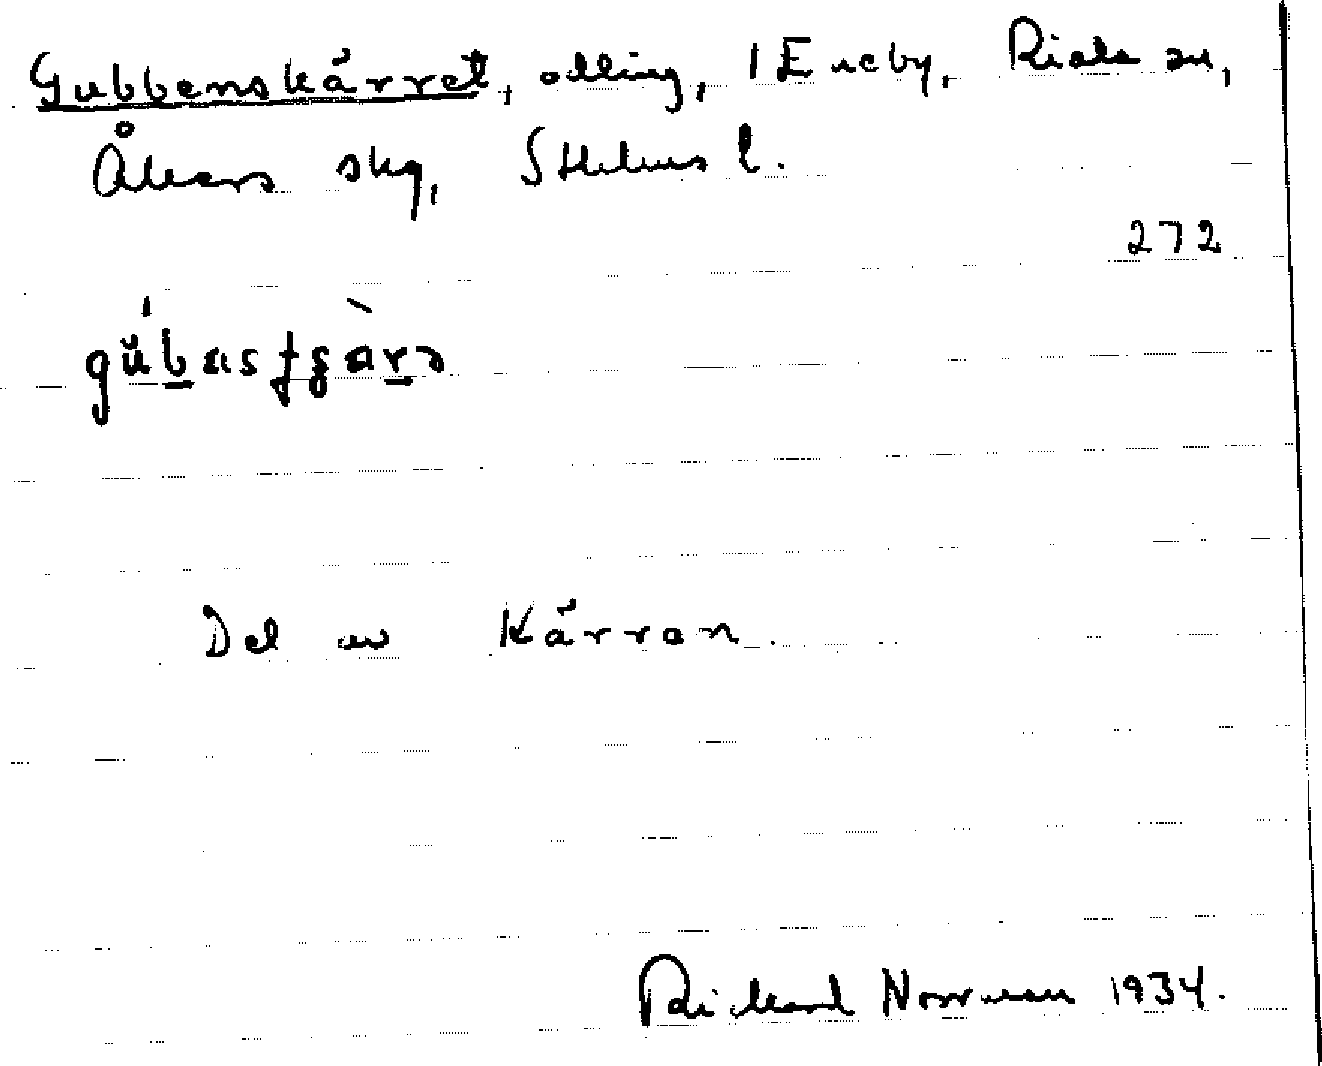 Gubbenskärret, odling, 1 Eneby, Riala sn,
Åkers skg, Sthlms l.
272
Del av Kärren.
Rickard Norrman 1934.